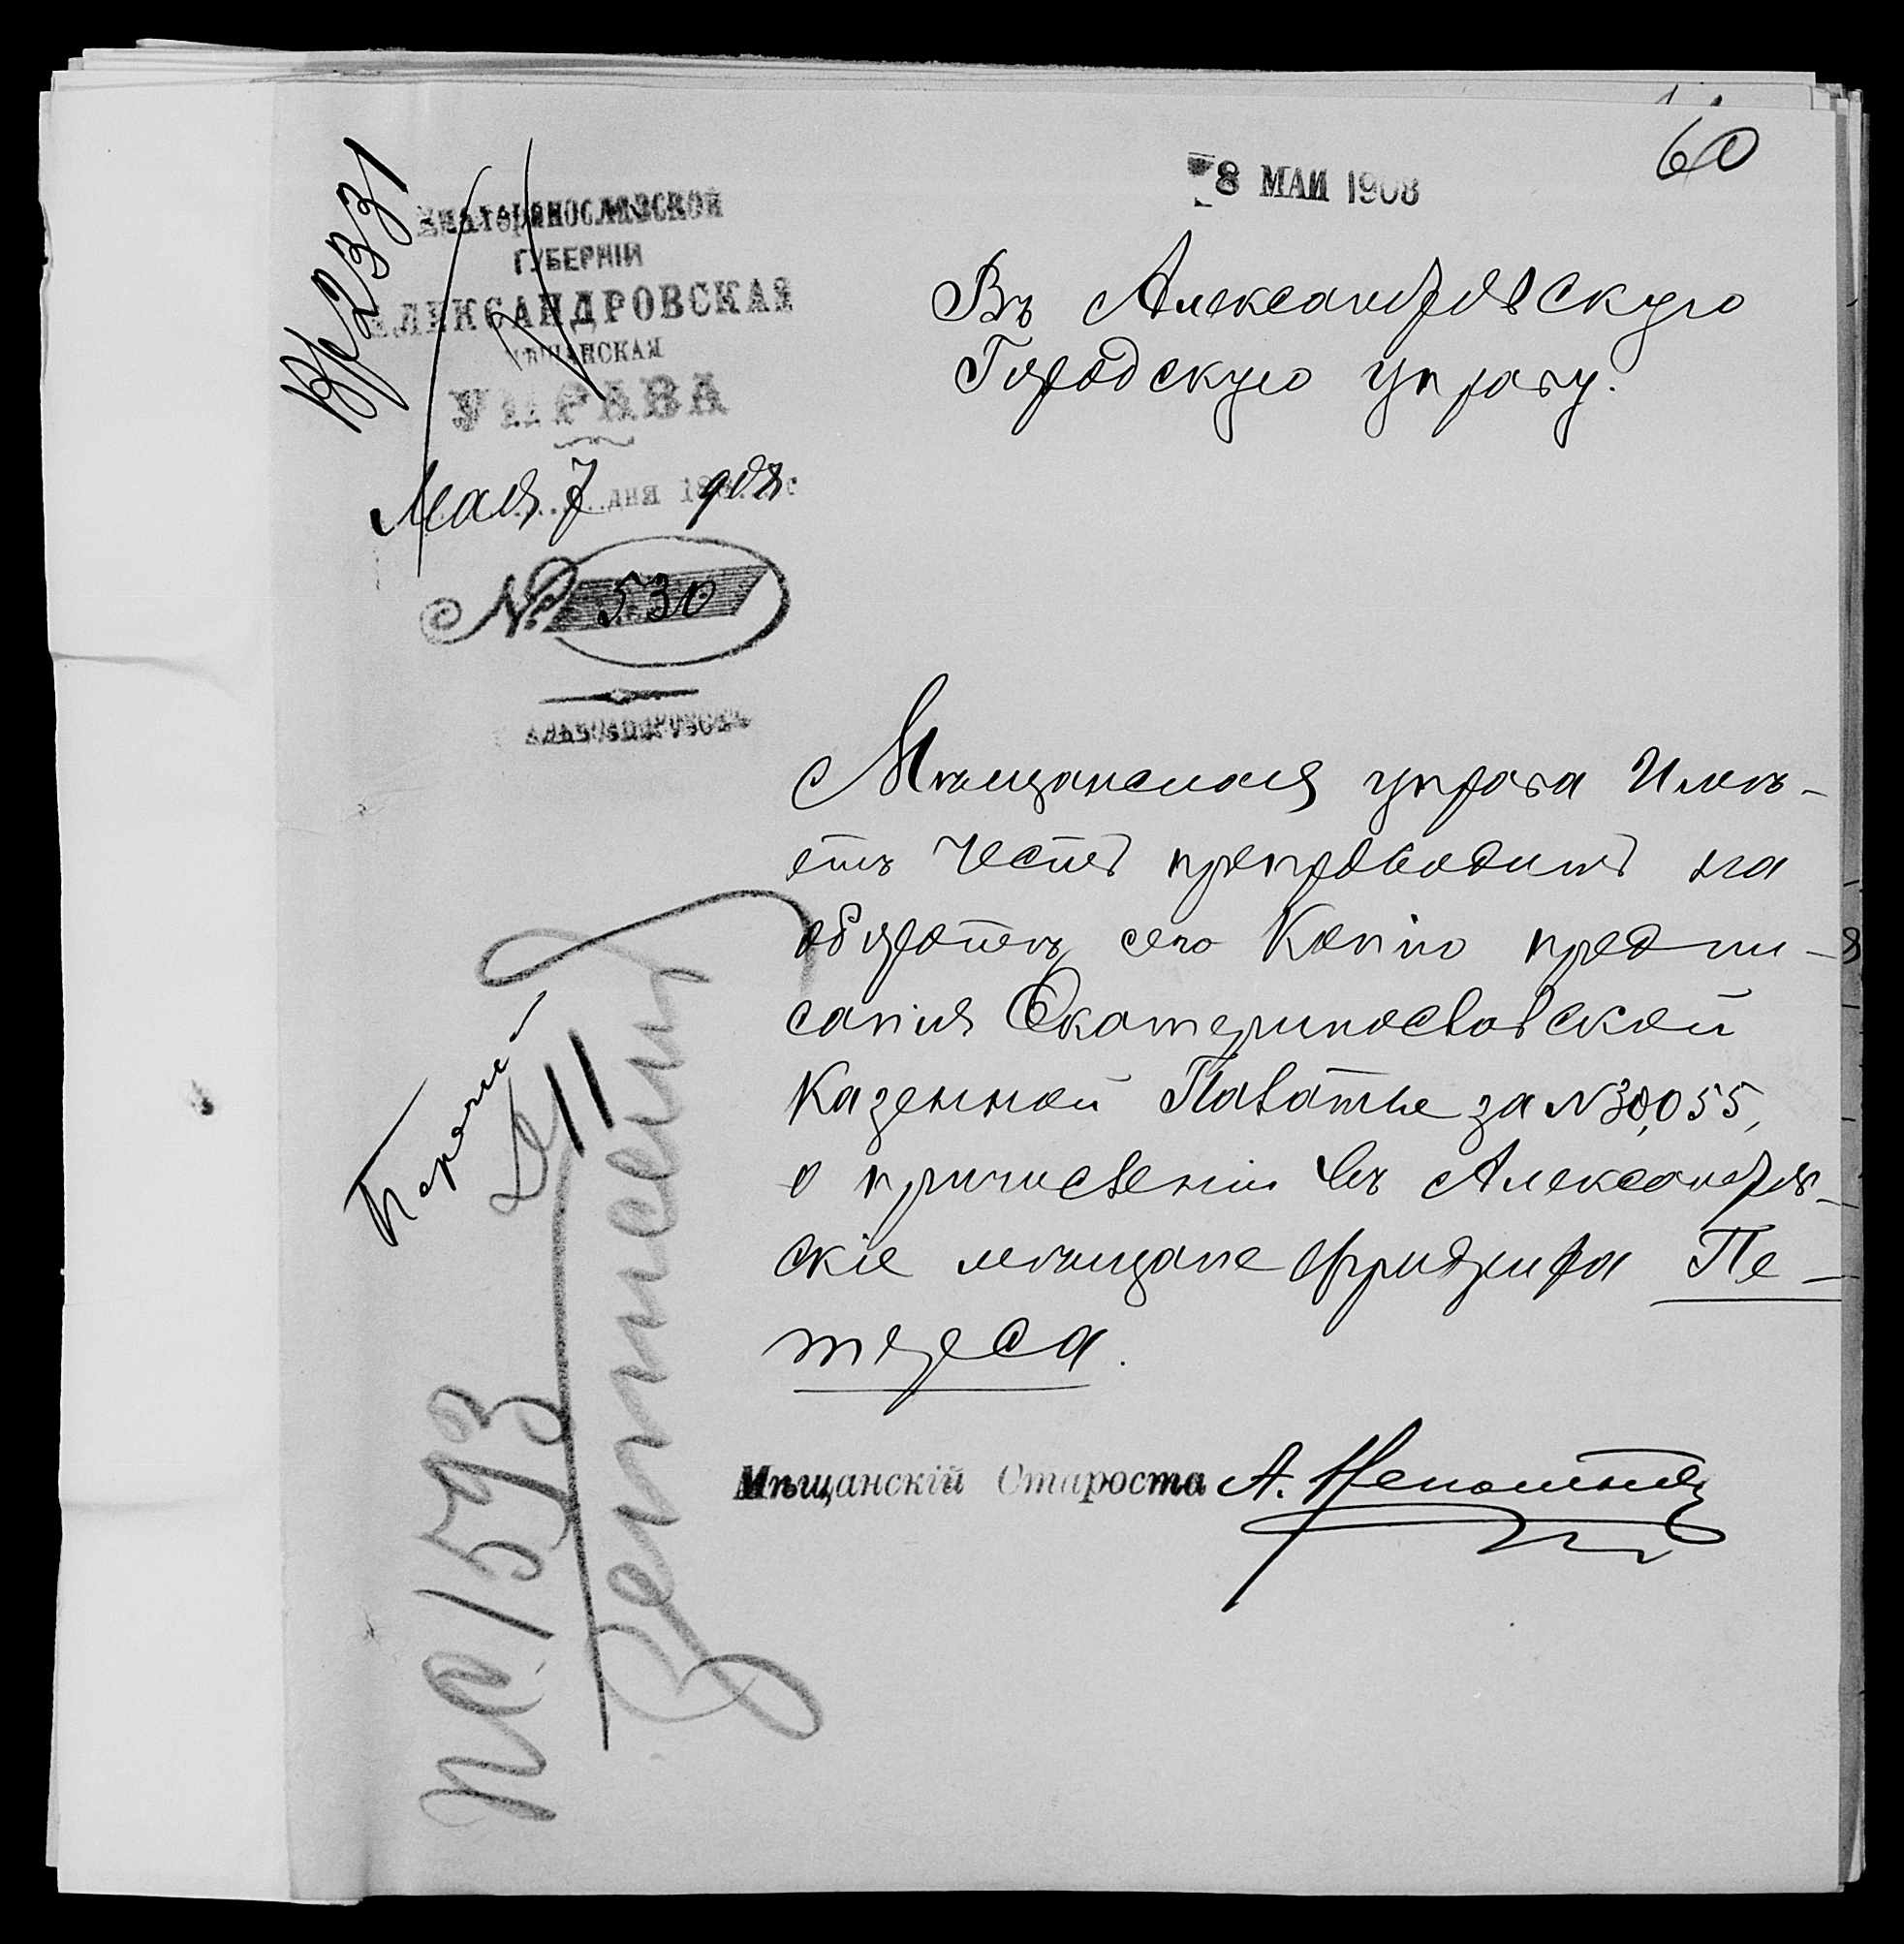 60
8 МАЯ 1908
Вр 2331
Екатеринославской
ГУБЕРНІИ
АЛЕКСАНДРОВСКАЯ
МѢЩАНСКАЯ
УПРАВА
Мая 7 дня 1908 г
№ 530
АЛЕКСАНДРОВСКЪ
Въ Александровскую
Городскую управу.
Мѣщанская управа имѣ-
етъ честь препроводить на
оборотѣ сего копію предпи-
санія Екатеринославской
Казенной Палаты за №30,055,
о причисленіи въ Александров-
скіе мѣщане Фридриха Пе-
терса.
Мѣщанскій Староста А.